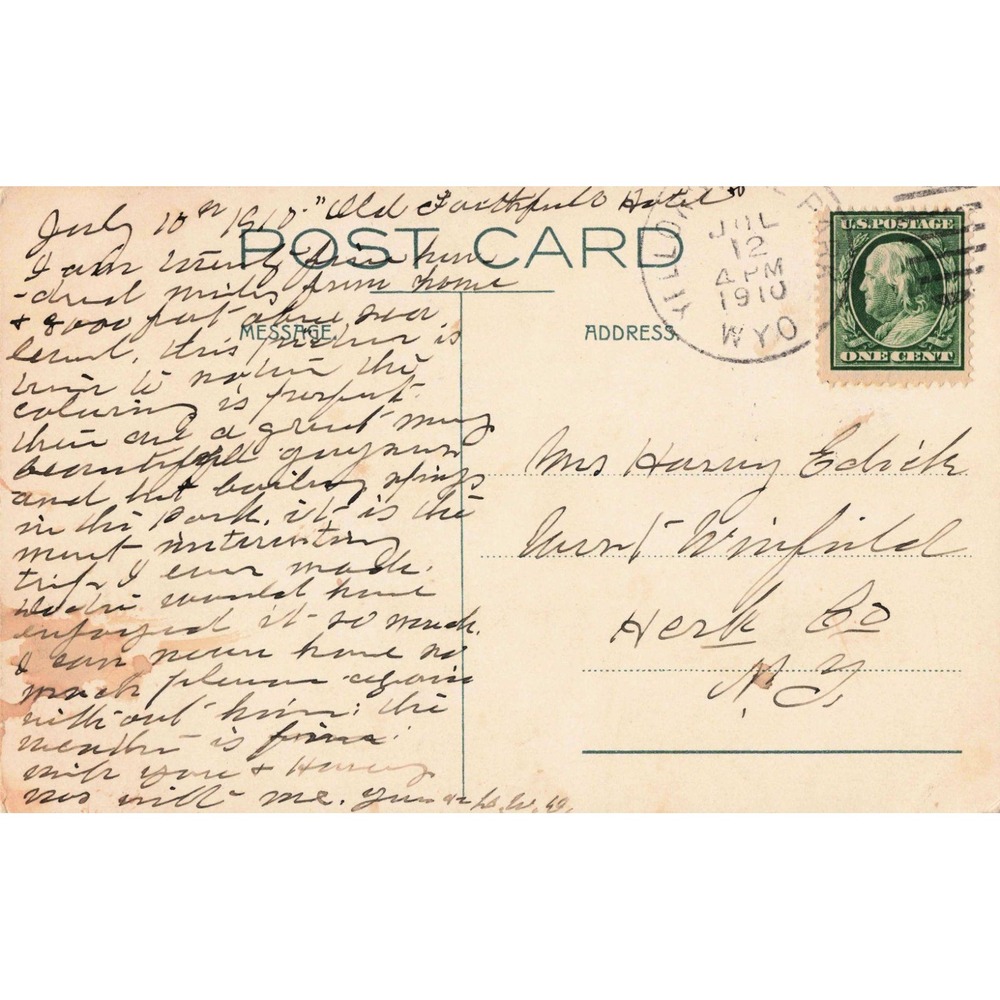 July 10th 1910. "Old Faithful Hotel"
POST CARD
I am twenty five hun
-dred miles from home
& 8000 feet above sea
level, this picture is
true to nature the
coloring is perfect.
there are a great many
beautiful geysers
and hot boiling springs
in the Park. it is the
most interesting
trip I ever made.
would have
enjoyed it so much.
I can never have so
much pleasure again
without him: the
weather is fine.
wish you & Harvey
was with me. Yours
MESSAGE.
ADDRESS.
PARK
JUL
12
4 PM
1910
WYO
U.S. POSTAGE
ONE CENT
Mrs Harvey Edick
West Winfield
Herk Co
N.Y.